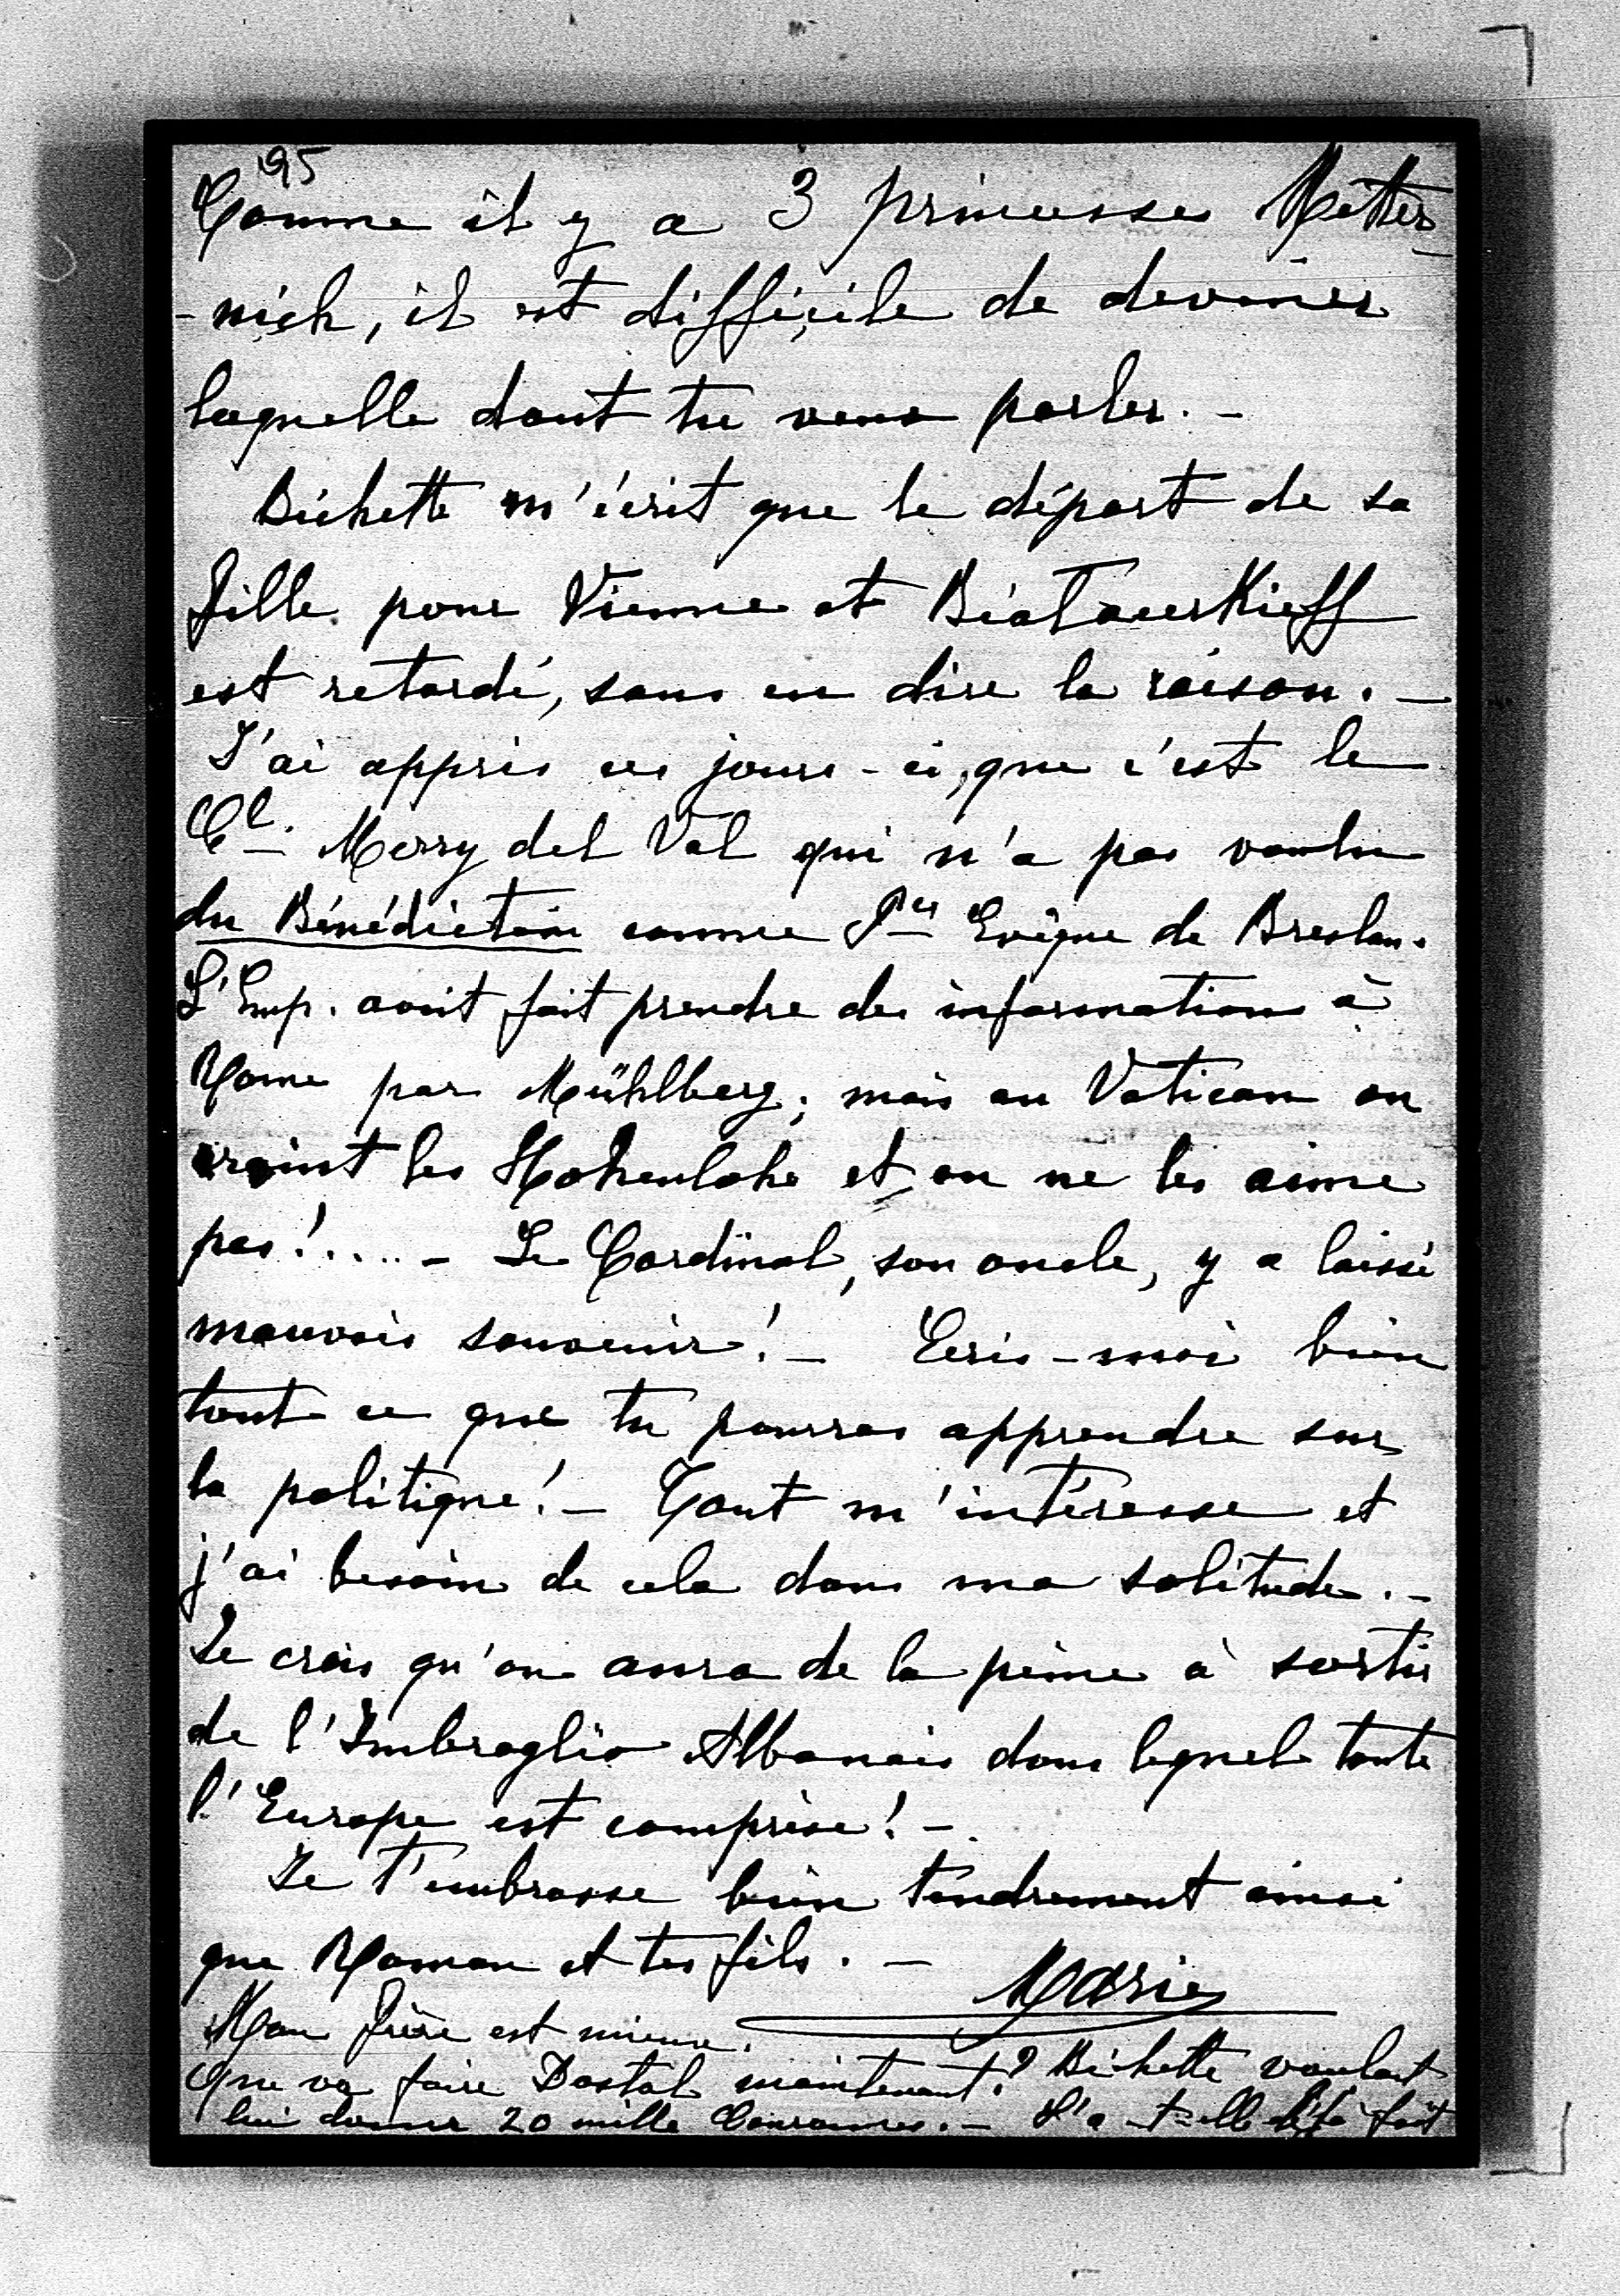 195
Comme il y a 3 princesses Metter-
-nich, il est difficile de deviner
laquelle dont tu veux parler. -
Bichette m'écrit que le départ de sa
fille pour Vienne et
est retardé, sans en dire la raison. -
J'ai appris ces jours-ci, que c'est le
Cl. Merry del Val qui n'a pas voulu
du Bénédictin comme Pce Evêque de Breslau.
L'Emp. avait fait prendre des informations à
Rome par Mühlberg; mais au Vatican on
craint les Hohenlohe et on ne les aime
pas!..... - Le Cardinal, son oncle, y a laissé
mauvais souvenir! - Ecris-moi bien
tout ce que tu pourras apprendre sur
la politique! - Tout m'intéresse et
j'ai besoin de cela dans ma solitude. -
Je crois qu'on aura de la peine à sortir
de l'Imbroglio Albanais dans lequel toute
l'Europe est comprise! -
Je t'embrasse bien tendrement ainsi
que Roman et tes fils. -
Marie
Mon frère est mieux.
Que va faire Dostal maintenant? Bichette voulait
lui donner 20 mille Couronnes. - L'a-t-elle déjà fait